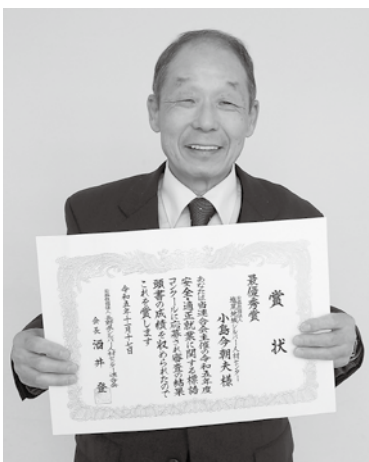 賞状
最優秀賞
小島今朝夫様
あなたは当連合会主催の令和五年度
安全・適正就業に関する標語
コンクールに応募され審査の結果
頭書の成績を収められたので
これを賞します
令和五年十月十七日
会長 酒井登